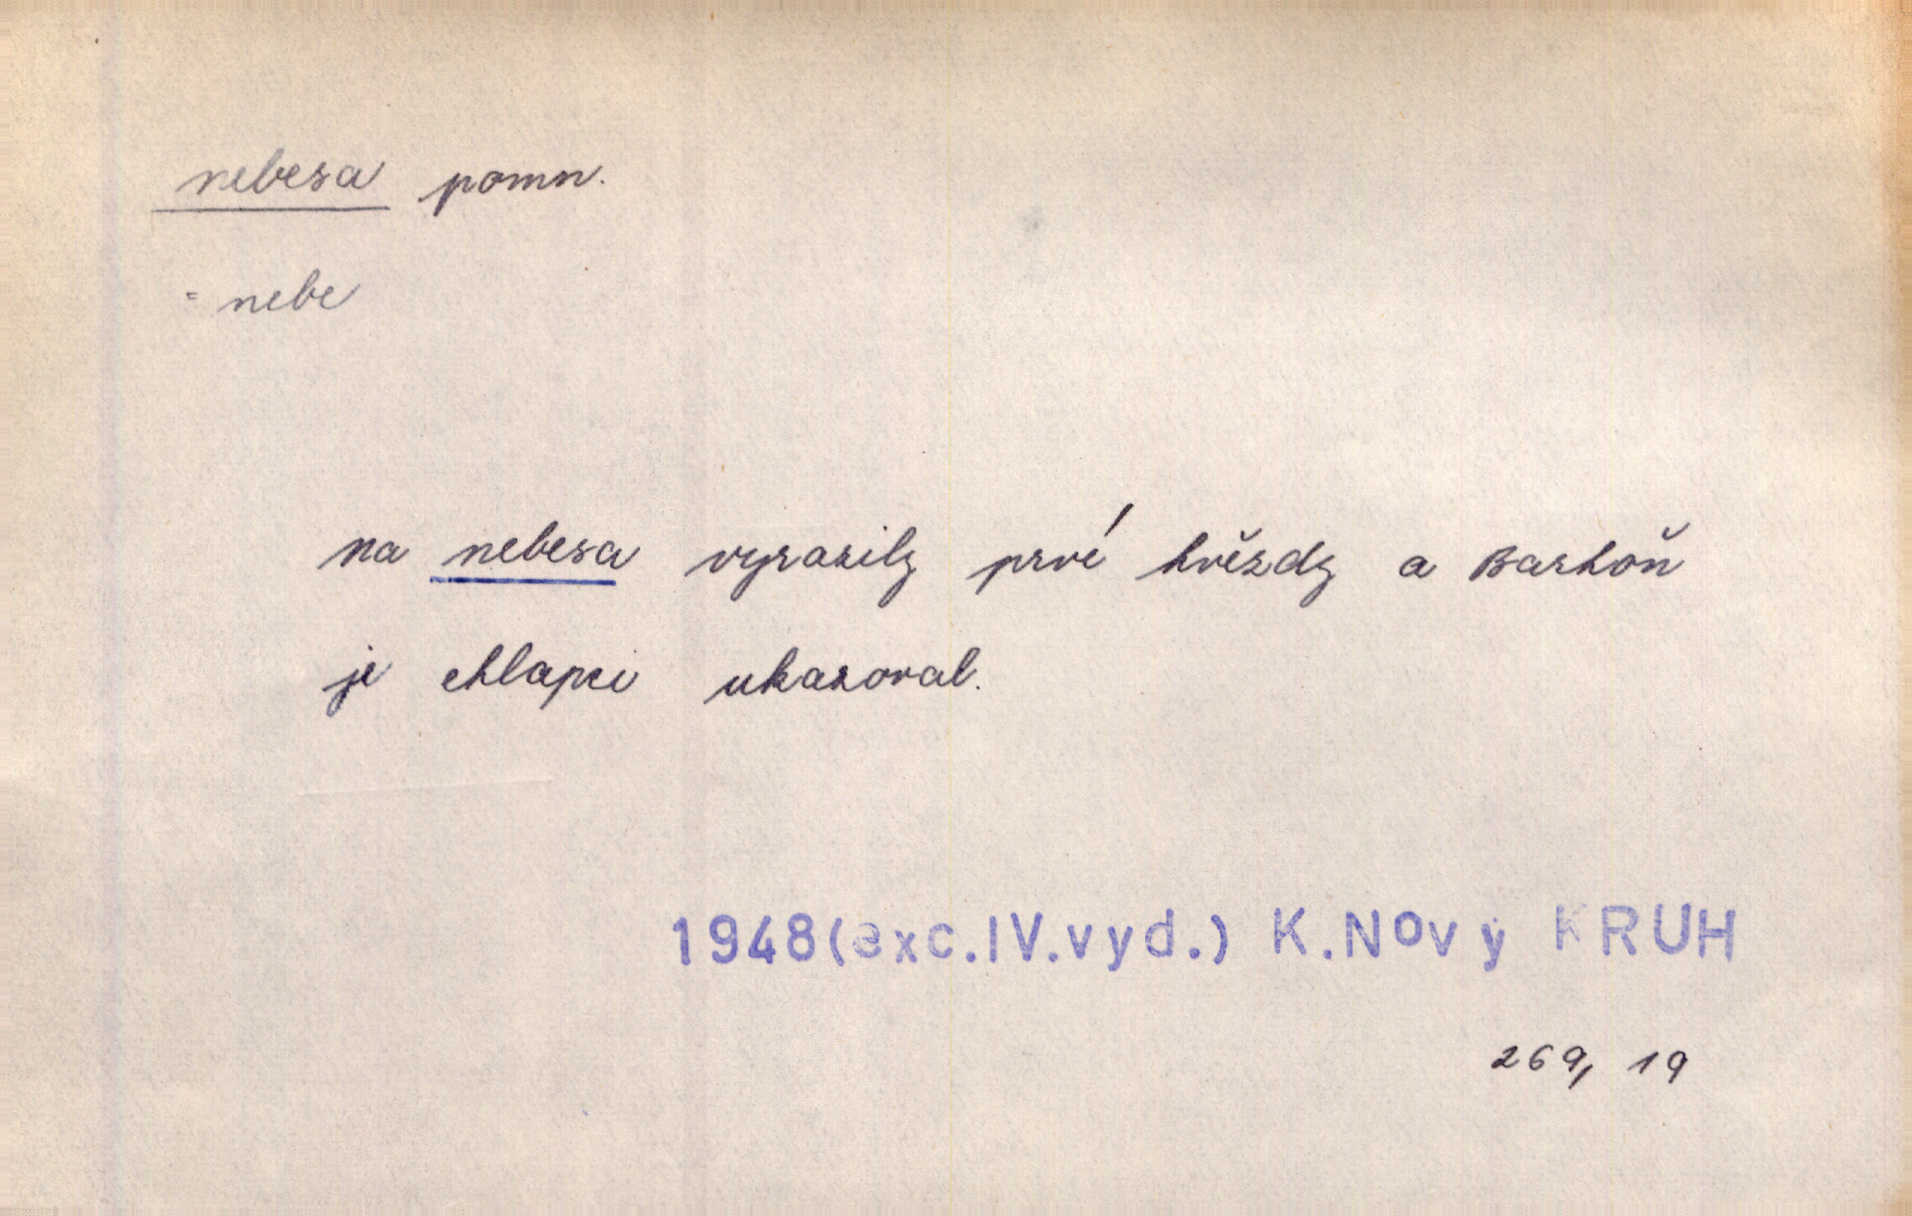 nebesa pomn.
= nebe
na nebesa vyrazily prvé hvězdy a Barhoň
je chlapci ukazoval.
1948(exc.IV.vyd.) K.Nový KRUH
269, 19